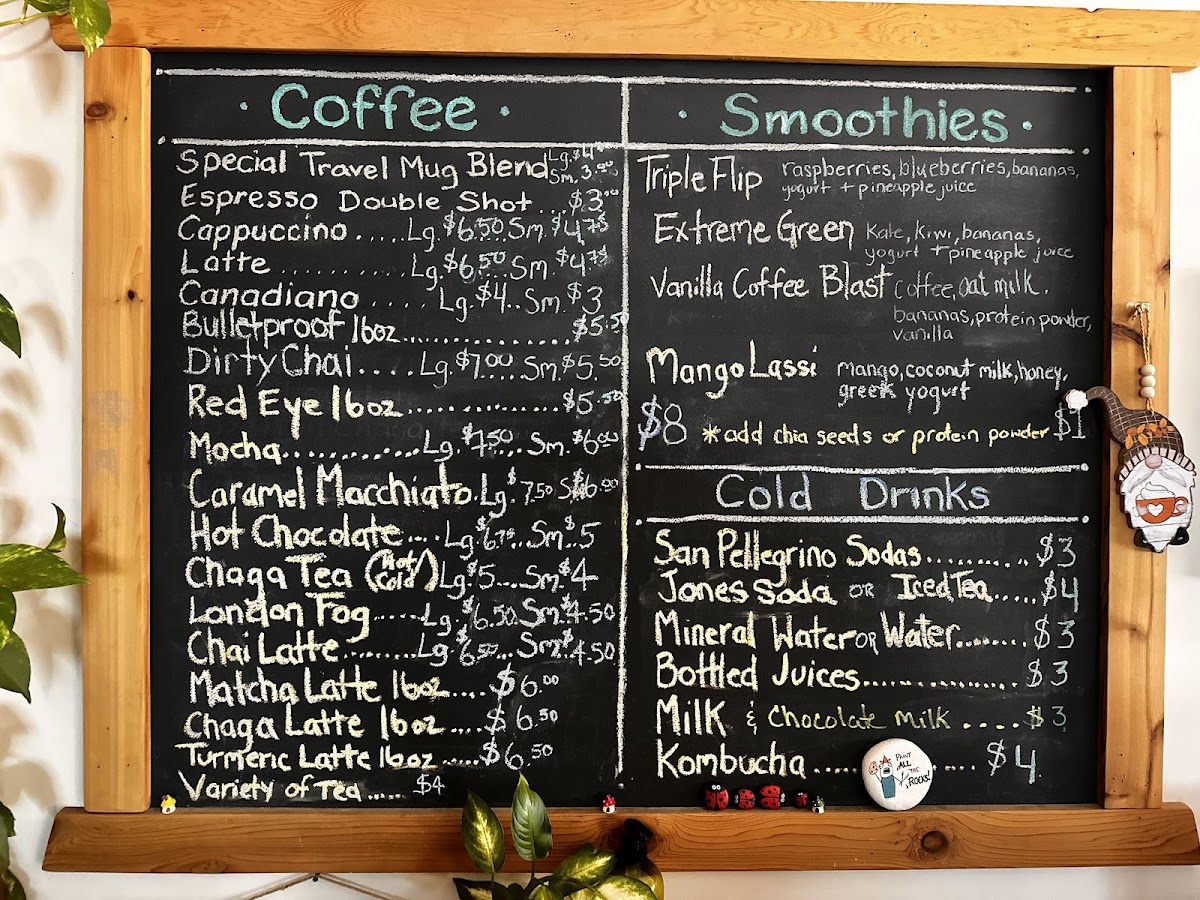 · Coffee ·
Special Travel Mug Blend Lg. $4.00
Sm. 3.00
Espresso Double Shot... $3.00
Cappuccino.....Lg.$6.50..Sm.$4.75
Latte..........Lg.$6.50..Sm.$4.75
Canadiano.....Lg.$4..Sm.$3
Bulletproof 16oz................$5.50
Dirty Chai....Lg.$7.00...Sm.$5.50
Red Eye 16oz................$5.50
Mocha............Lg.$7.50..Sm.$6.00
Caramel Macchiato.Lg.$7.50 S$6.00
Hot Chocolate....Lg.$6.75..Sm.$5
Chaga Tea (Hot/Cold) Lg.$5...Sm.$4
London Fog.....Lg.$6.50.Sm.$4.50
Chai Latte........Lg.$6.50..Sm.$4.50
Matcha Latte 16oz....$6.00
Chaga Latte 16oz....$6.50
Turmeric Latte 16oz....$6.50
Variety of Tea..... $4
· Smoothies ·
Triple Flip raspberries, blueberries, bananas,
yogurt + pineapple juice
Extreme Green Kale, kiwi, bananas,
yogurt + pineapple juice
Vanilla Coffee Blast coffee, oat milk,
bananas, protein powder,
vanilla
Mango Lassi mango, coconut milk, honey,
greek yogurt
$8 *add chia seeds or protein powder $1
Cold Drinks
San Pellegrino Sodas..........$3
Jones Soda or Iced Tea.....$4
Mineral Water or Water........$3
Bottled Juices................$3
Milk & Chocolate Milk....$3
Kombucha.........$4
PAINT
ALL
THE
ROCKS!